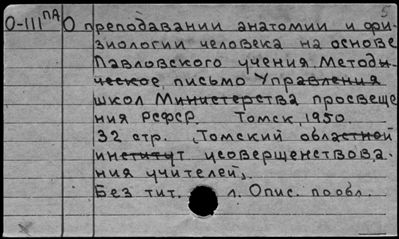 5
О-III ПА О преподавании анатомии и фи-
зиологии человека на основе
Павловского учения. Методи-
ческое письмо Управления
школ Министерства просвеще
ния РСФСР. Томск, 1950.
32 стр. (Томский областной
институт усовершенствова-
ния учителей).
Без тит. л. Опис. по обл.